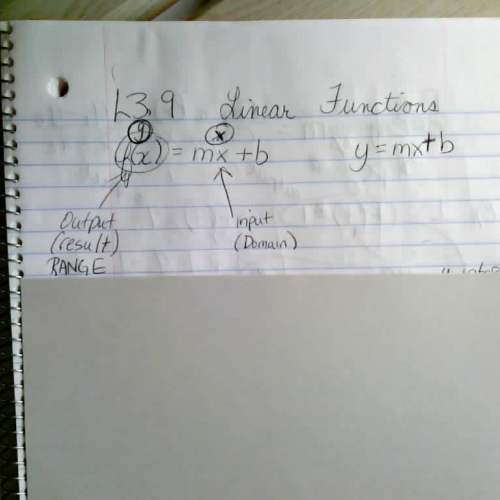 L3.9 Linear Functions
y x
f(x) = mx + b y = mx + b
Output Input
(result) (Domain)
RANGE